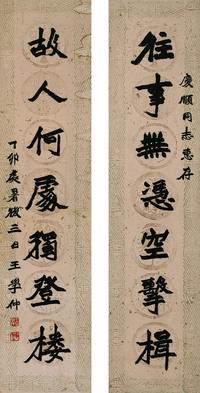 慶順同志惠存
往事無憑空擊楫
故人何處獨登樓
丁卯處暑後三日王學仲